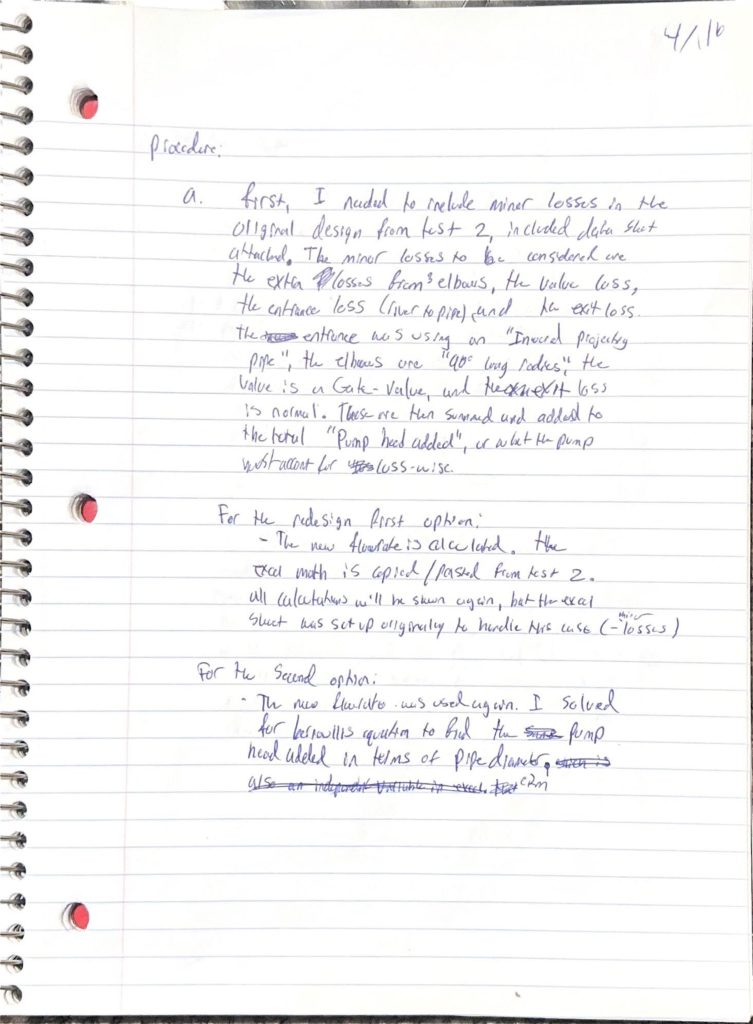 Procedure:
a. first, I needed to include minor losses in the
original design from test 2, included data sheet
attached. The minor losses to be considered are
the extra losses from 3 elbows, the valve loss,
the entrance loss (river to pipe), and the exit loss.
the entrance was using an "Inward projecting
pipe", the elbows are "90° long radius", the
valve is a Gate-valve, and the exit loss
is normal. These are then summed and added to
the total "Pump head added", or what the pump
must account for loss-wise.
For the redesign first option:
- The new flowrate is calculated. the
excel math is copied/pasted from test 2.
all calculations will be shown again, but the excel
sheet was set up originally to handle this case (- minor losses)
For the second option:
- The new flowrate was used again. I solved
for bernoullis equation to find the pump
head added in terms of pipe diameter,
also an independent variable in excel.